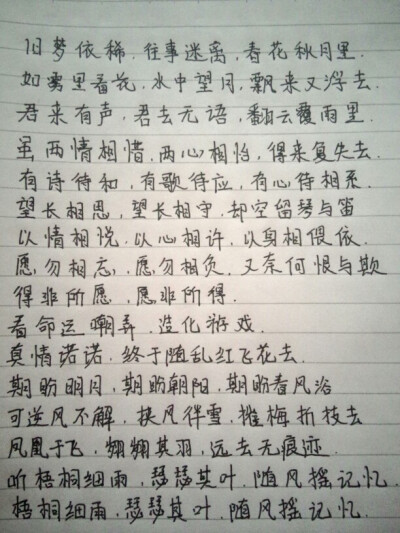 旧梦依稀,往事迷离,春花秋月里.
如雾里看花,水中望月,飘来又浮去.
君来有声,君去无语,翻云覆雨里.
虽两情相惜,两心相怡,得来复失去.
有诗待和,有歌待应,有心待相系.
望长相思,望长相守,却空留琴与笛
以情相悦,以心相许,以身相偎依.
愿勿相忘,愿勿相负,又奈何恨与欺
得非所愿,愿非所得.
看命运嘲弄,造化游戏.
真情诺诺,终于随乱红飞花去.
期盼明月,期盼朝阳,期盼春风浴
可逆风不解,挟风伴雪,摧梅折枝去
凤凰于飞,翙翙其羽,远去无痕迹.
听梧桐细雨,瑟瑟其叶,随风摇记忆.
梧桐细雨,瑟瑟其叶,随风摇记忆.